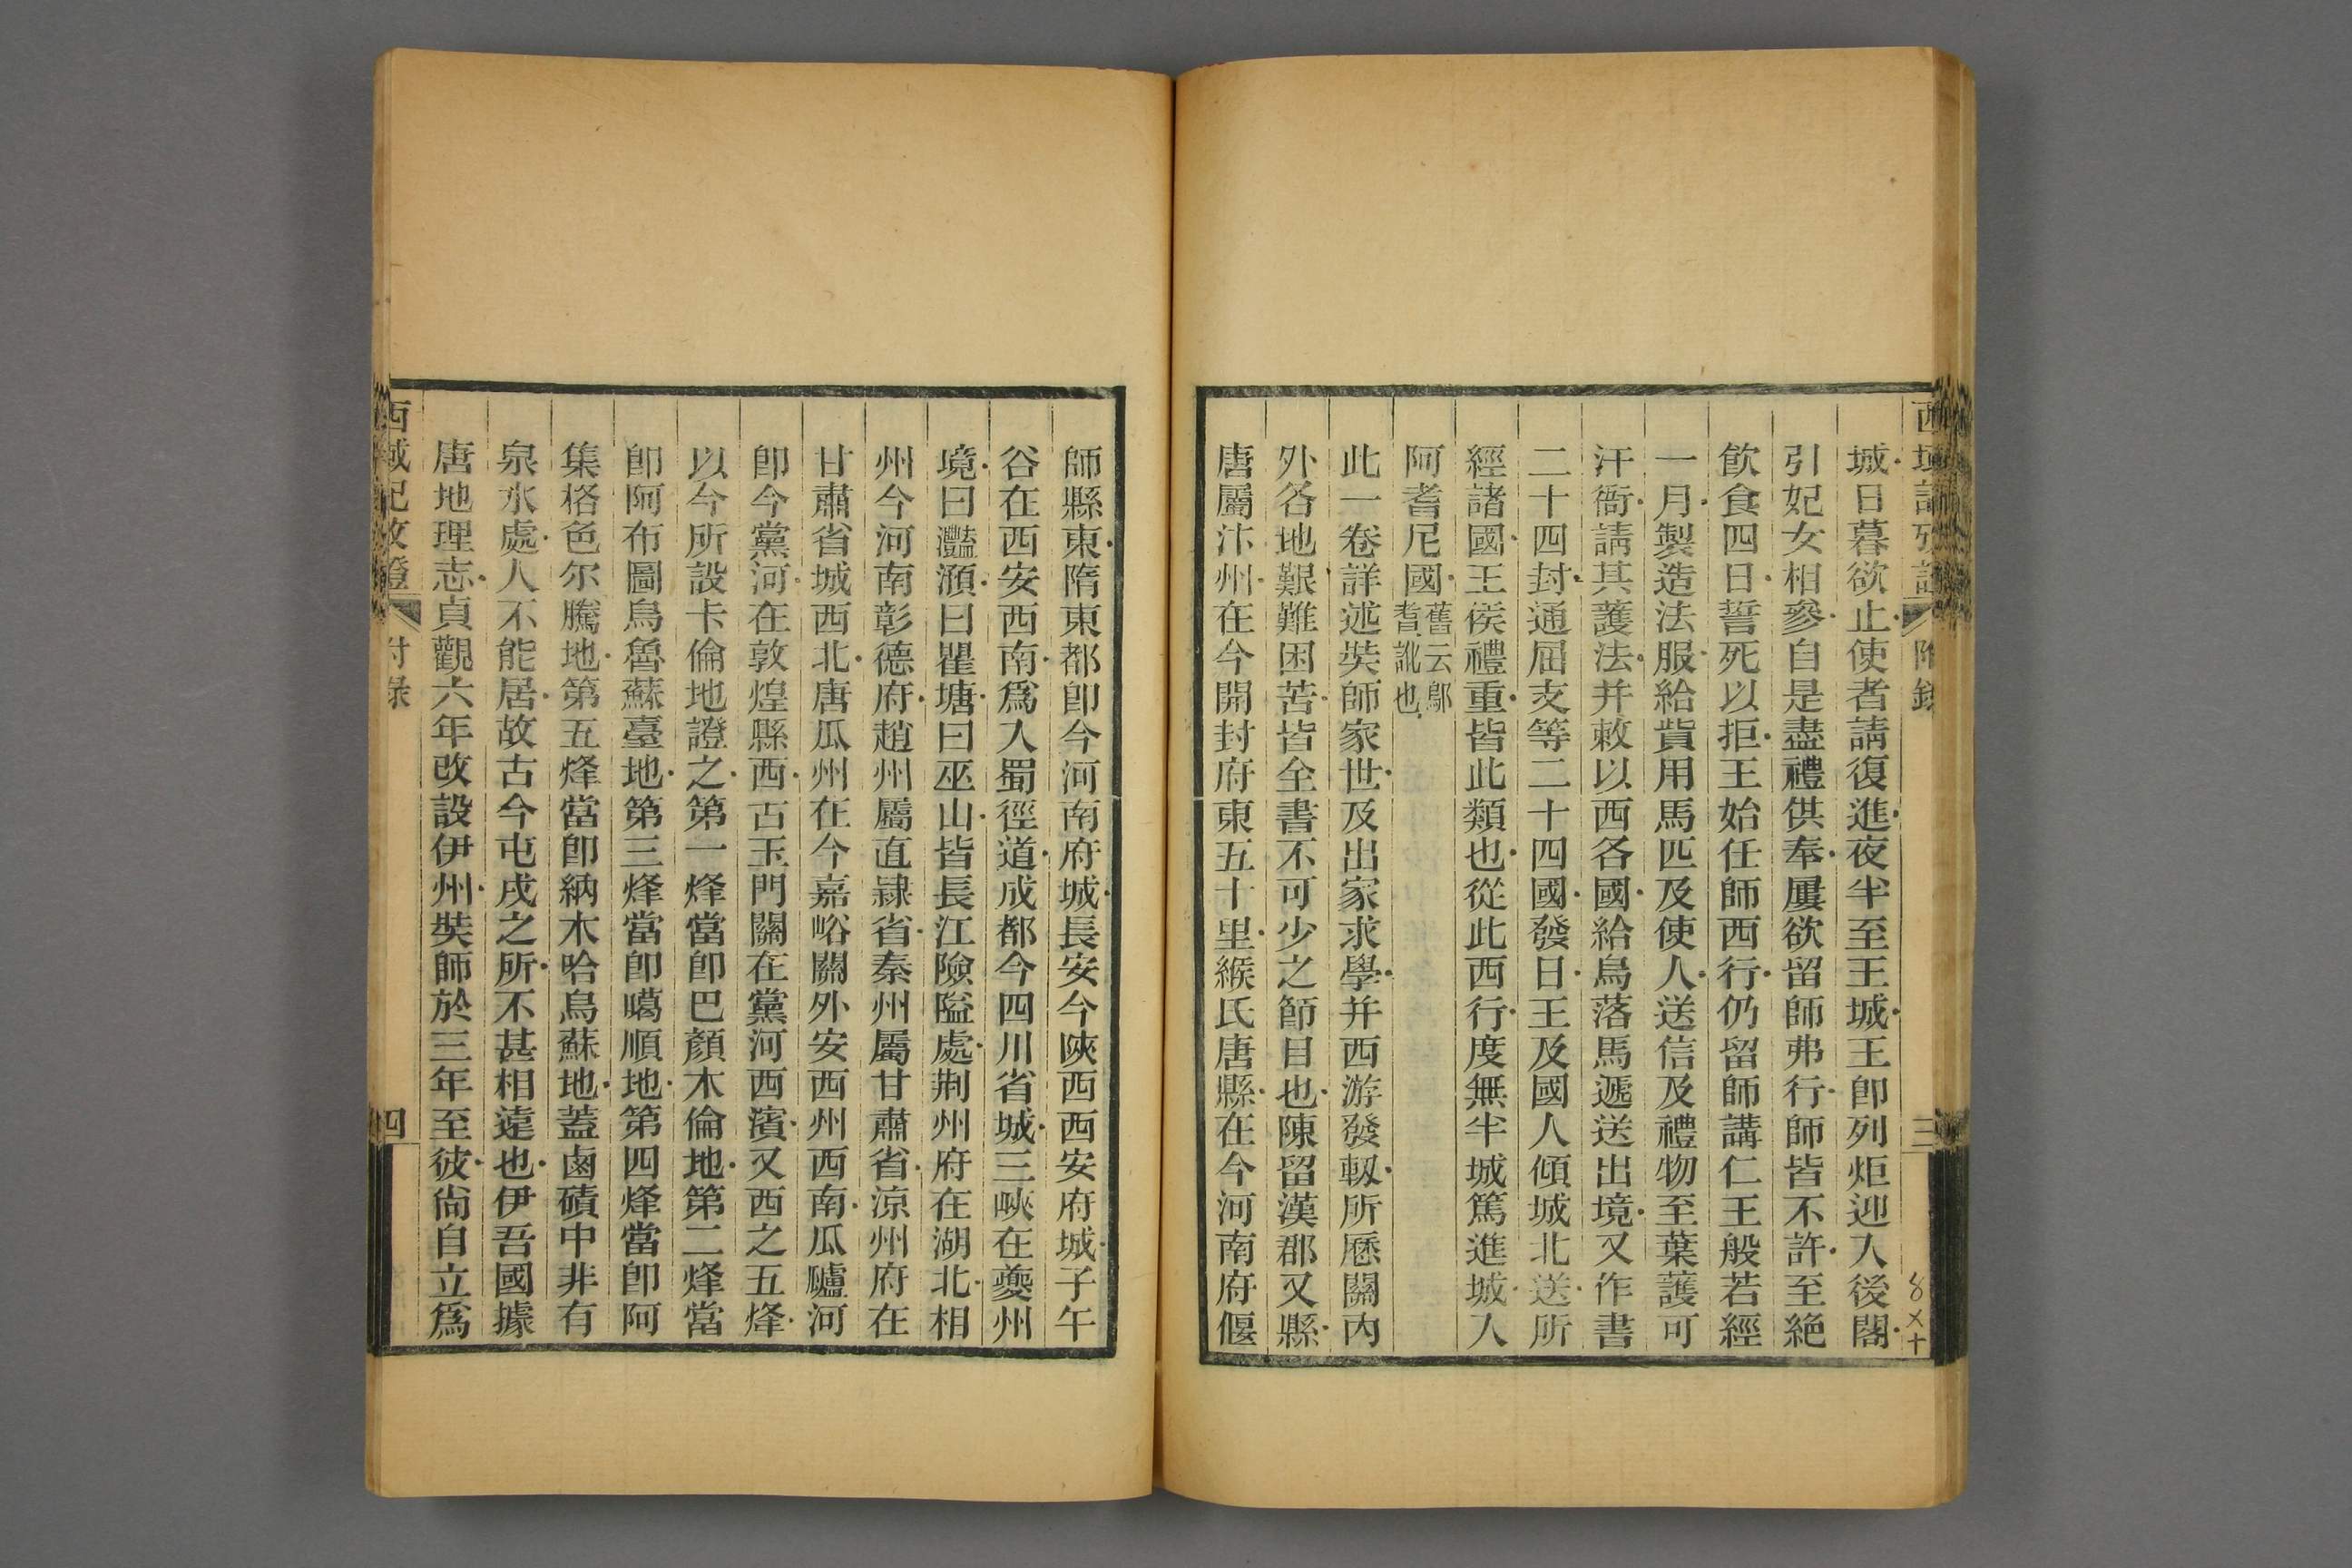 城日暮欲止使者請復進夜半至王城王卽列炬迎入後閣
引妃女相參自是盡禮供奉屢欲留師弗行師皆不許至絶
飲食四日誓死以拒王始任師西行仍留師講仁王般若經
一月製造法服給貲用馬匹及使人送信及禮物至葉護可
汗衙請其護法并敕以西各國給烏落馬遞送出境又作書
二十四封通屈支等二十四國發日王及國人傾城北送所
經諸國王侯禮重皆此類也從此西行度無半城篤進城入
阿耆尼國舊云鄔耆訛也
此一卷詳述奘師家世及出家求學并西游發軔所歷關內
外各地艱難困苦皆全書不可少之節目也陳留漢郡又縣
唐屬汴州在今開封府東五十里緱氏唐縣在今河南府偃
師縣東隋東都卽今河南府城長安今陝西西安府城子午
谷在西安西南爲入蜀徑道成都今四川省城三峽在夔州
境曰灩澦曰瞿塘曰巫山皆長江險隘處荆州府在湖北相
州今河南彰德府趙州屬直隸省秦州屬甘肅省涼州府在
甘肅省城西北唐瓜州在今嘉峪關外安西州西南瓜𤬛河
卽今黨河在敦煌縣西古玉門關在黨河西濱又西之五烽
以今所設卡倫地證之第一烽當卽巴顏木倫地第二烽當
卽阿布圖烏魯蘇臺地第三烽當卽噶順地第四烽當卽阿
集格色尔騰地第五烽當卽納木哈烏蘇地蓋鹵磧中非有
泉水處人不能居故古今屯戍之所不甚相遠也伊吾國據
唐地理志貞觀六年改設伊州奘師於三年至彼尙自立爲
西域記攷證 附錄 四